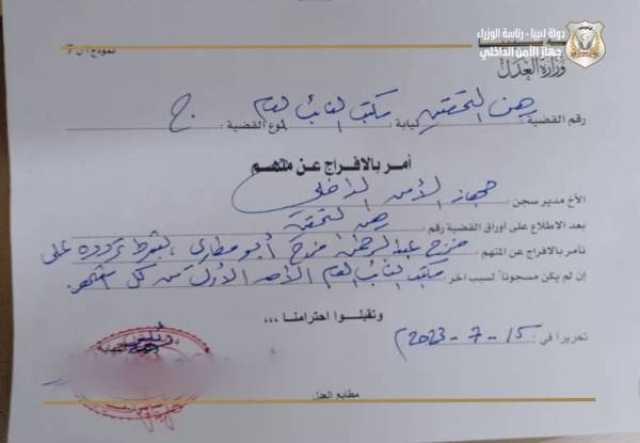 دولة ليبيا - رئاسة الوزراء
جهاز الأمن الداخلي
وزارة العدل
رقم القضية : رهن التحقيق نيابة : مكتب النائب العام نوع القضية : ج
أمر بالافراج عن متهم
الأخ مدير سجن : جهاز الأمن الداخلي
بعد الاطلاع على أوراق القضية رقم رهن التحقيق
نأمر بالافراج عن المتهم : فرج عبدالرحمن فرج أبو مطاري ، بشرط تردده على
إن لم يكن مسجوناً لسبب آخر : مكتب النائب العام الأحد الأول من كل شهر .
وتقبلوا احترامنا ،،،
تحريرا في : 15 - 7 - 2023 م
مطابع العدل